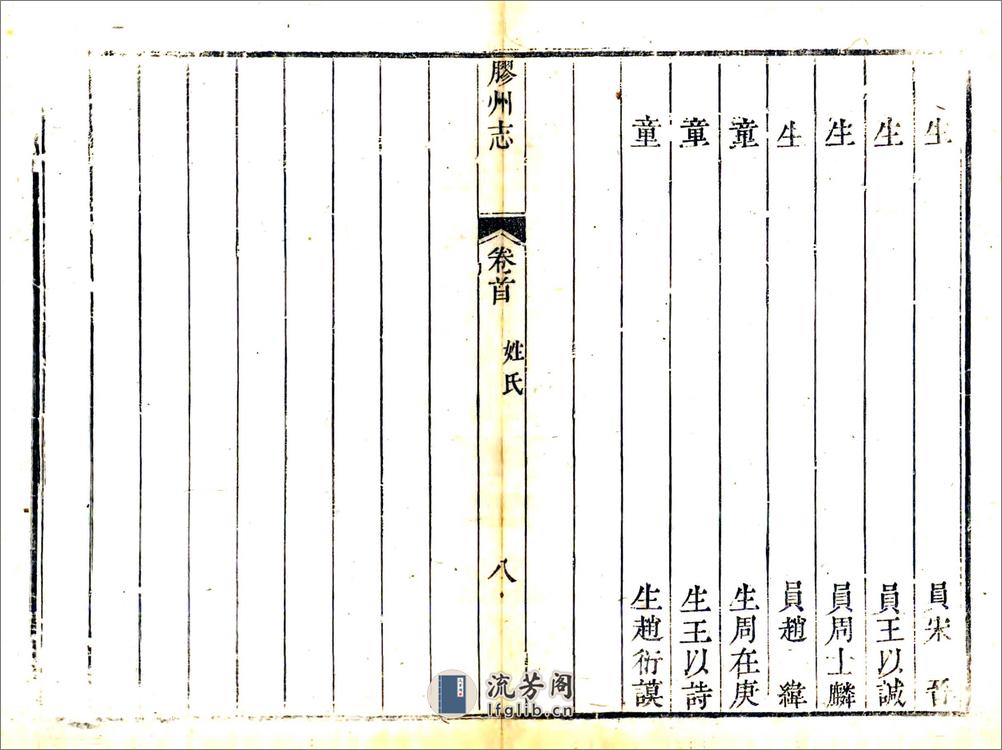 生員宋晉
生員王以誠
生員周士麟
生員趙緯
童生周在庚
童生王以詩
童生趙衍謨
膠州志
卷首
姓氏
八
流芳阁
lfglib.cn